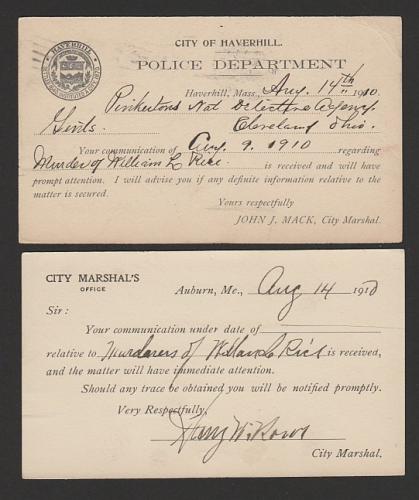 HAVERHILL
CITY OF HAVERHILL.
POLICE DEPARTMENT
Haverhill, Mass., Aug. 14th 1910.
Pinkertons Nat Detective Agency.
Gents. Cleveland Ohio.
Your communication of Aug 9. 1910 regarding
Murder of William L Rice is received and will have
prompt attention. I will advise you if any definite information relative to the
matter is secured.
Yours respectfully
JOHN J. MACK, City Marshal.
CITY MARSHAL'S
OFFICE
Auburn, Me., Aug 14 1910
Sir:
Your communication under date of
relative to Murderers of William L Rice is received,
and the matter will have immediate attention.
Should any trace be obtained you will be notified promptly.
Very Respectfully,
Harry W. Rowe
City Marshal.